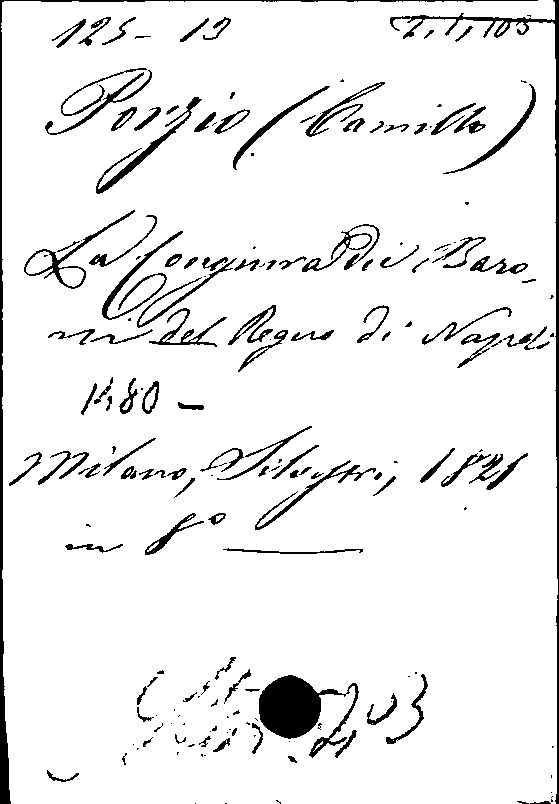 125- 13 2,1,103
Porzio (Camillo)
La Congiura dei Baro-
ni del Regno di Napoli
1480 -
Milano, Silvestri, 1821
in 8º